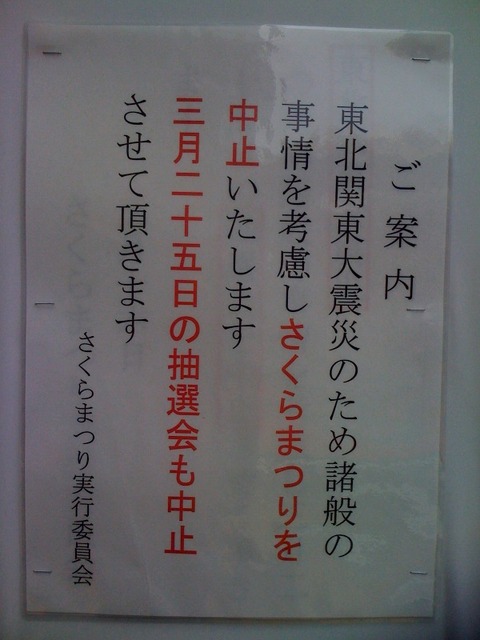 ご案内
東北関東大震災のため諸般の
事情を考慮しさくらまつりを
中止いたします
三月二十五日の抽選会も中止
させて頂きます
さくらまつり実行委員会